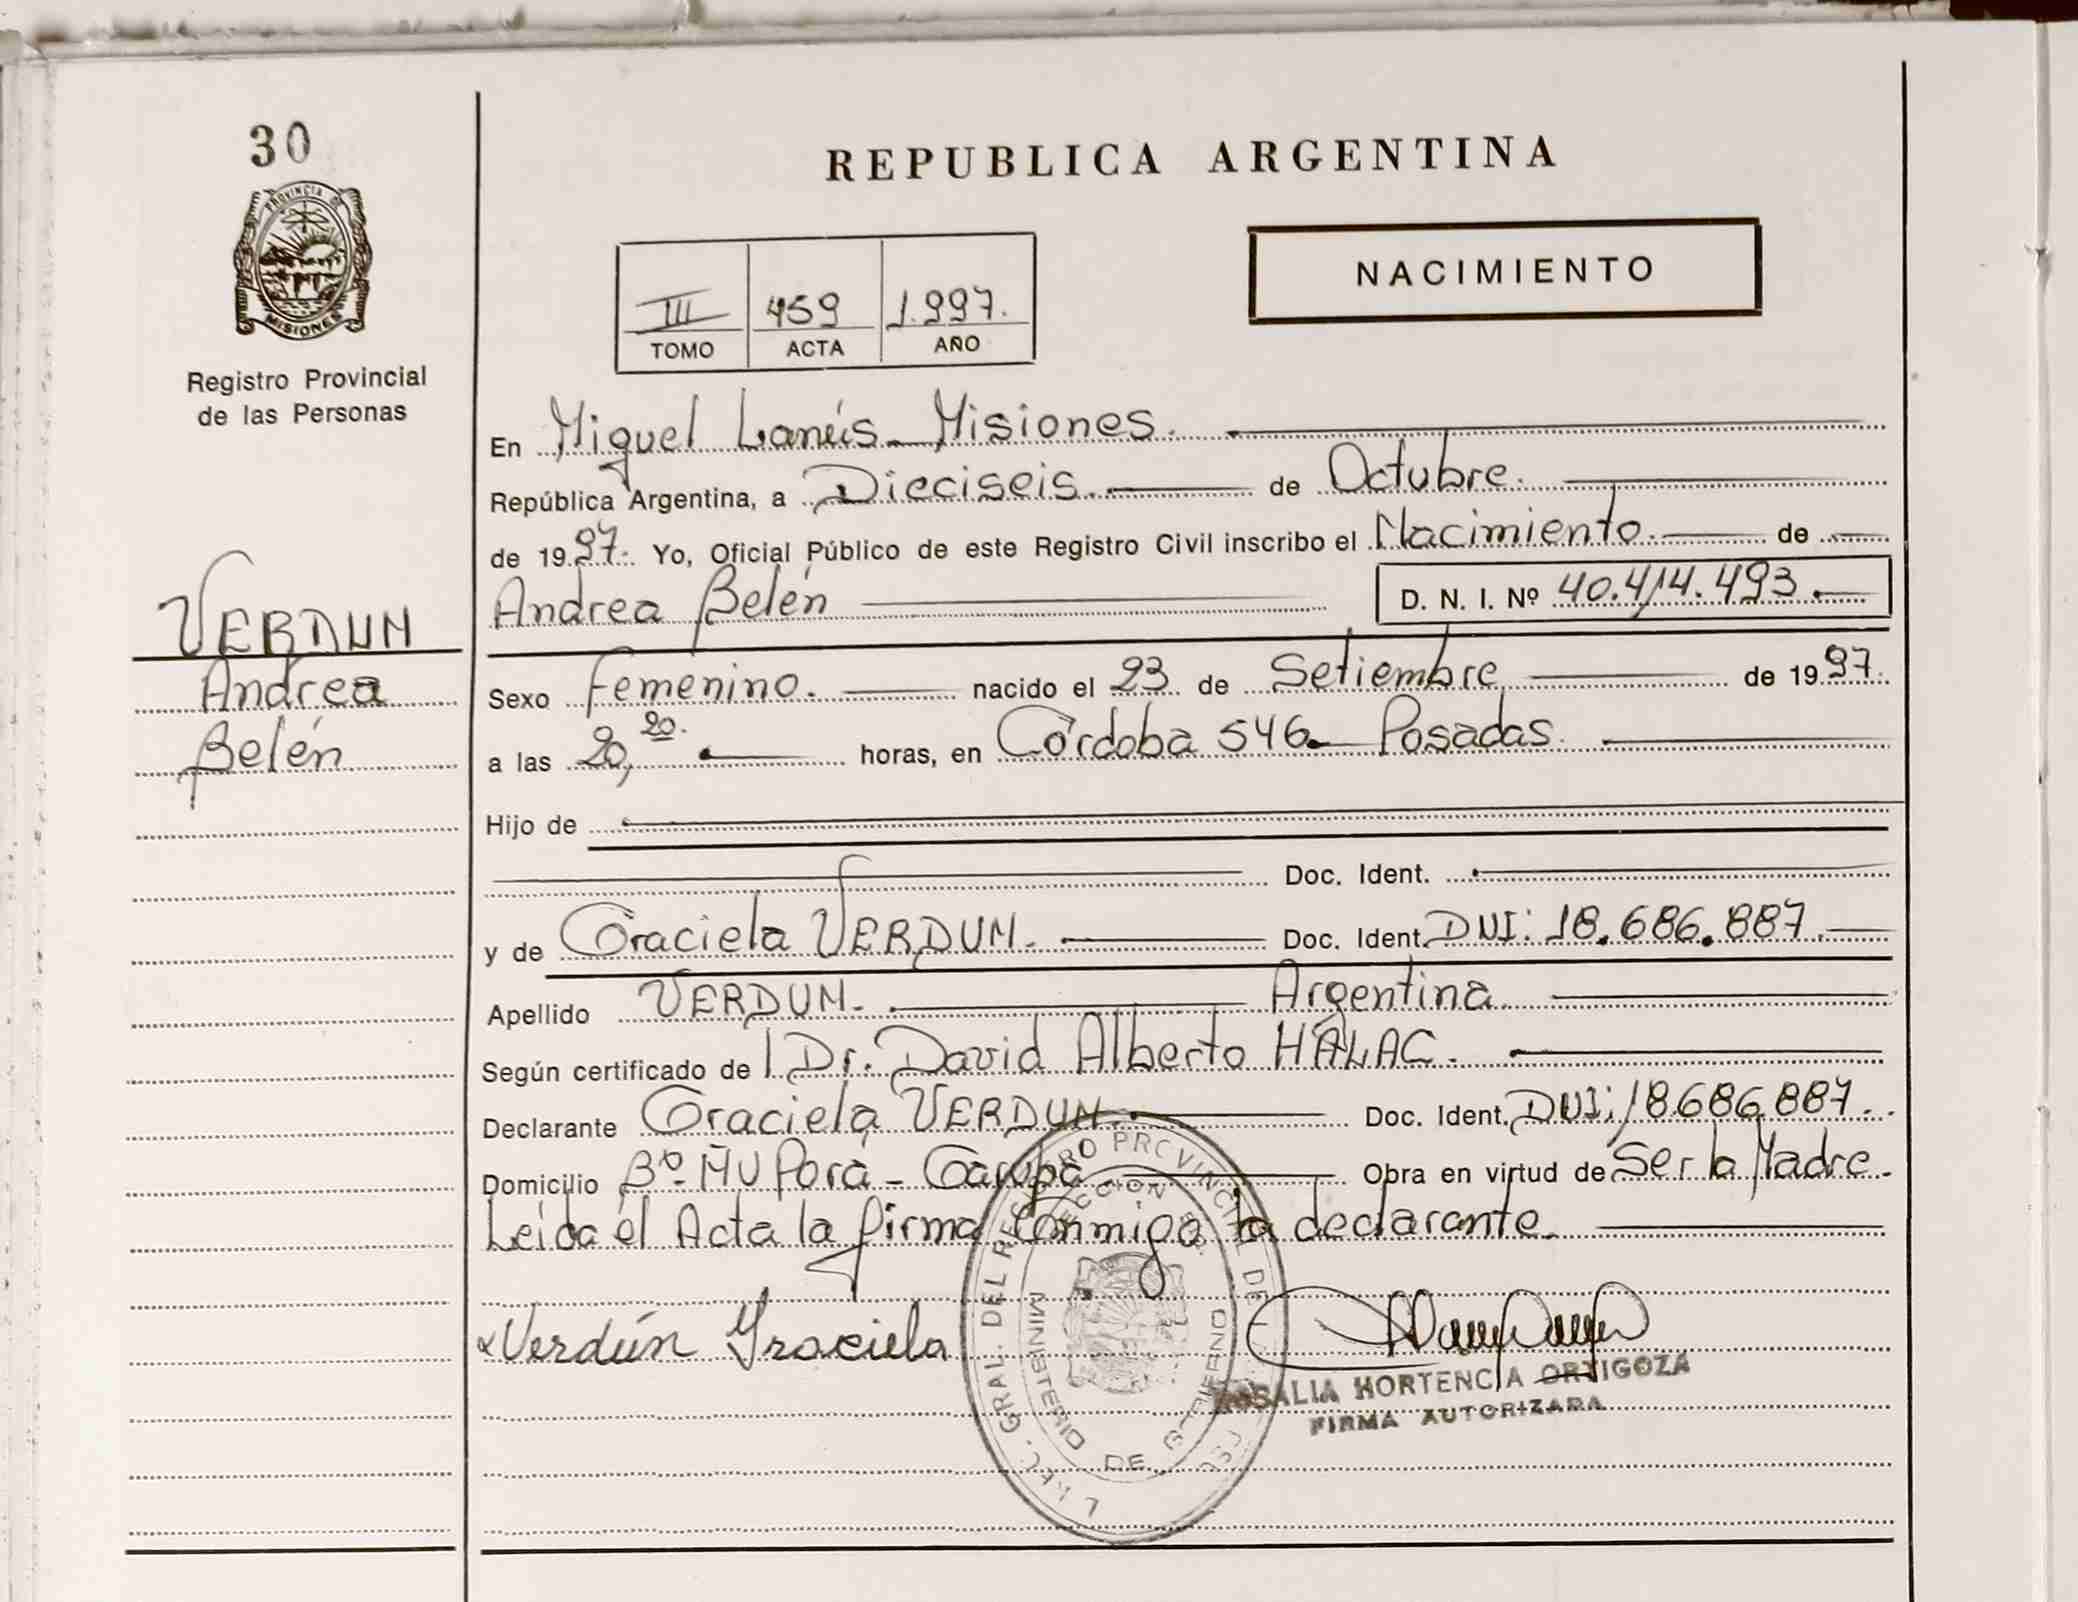 30
PROVINCIA DE
MISIONES
Registro Provincial
de las Personas
VERDUN
Andrea
Belén
REPUBLICA ARGENTINA
NACIMIENTO
III 459 1.997.
TOMO ACTA AÑO
En Miguel Lanús - Misiones.
República Argentina, a Dieciseis. de Octubre.
de 1997. Yo, Oficial Público de este Registro Civil inscribo el Nacimiento. de
Andrea Belén D. N. I. Nº 40.414.493.
Sexo Femenino. nacido el 23 de Setiembre de 1997.
a las 20,20. horas, en Córdoba 546 - Posadas.
Hijo de
Doc. Ident.
y de Graciela VERDUN. Doc. Ident. DNI: 18.686.887.
Apellido VERDUN. Argentina
Según certificado de Dr. David Alberto HALAC.
Declarante Graciela VERDUN. Doc. Ident. DNI: 18.686.887.
Domicilio Bº. Ñu Porá - Garupá Obra en virtud de Ser la Madre.
Leida el Acta la firma conmigo la declarante.
Verdún Graciela
GRAL. DEL REGISTRO PROVINCIAL DE
MINISTERIO DE GOBIERNO
ROSALIA HORTENCIA ORTIGOZA
FIRMA AUTORIZADA